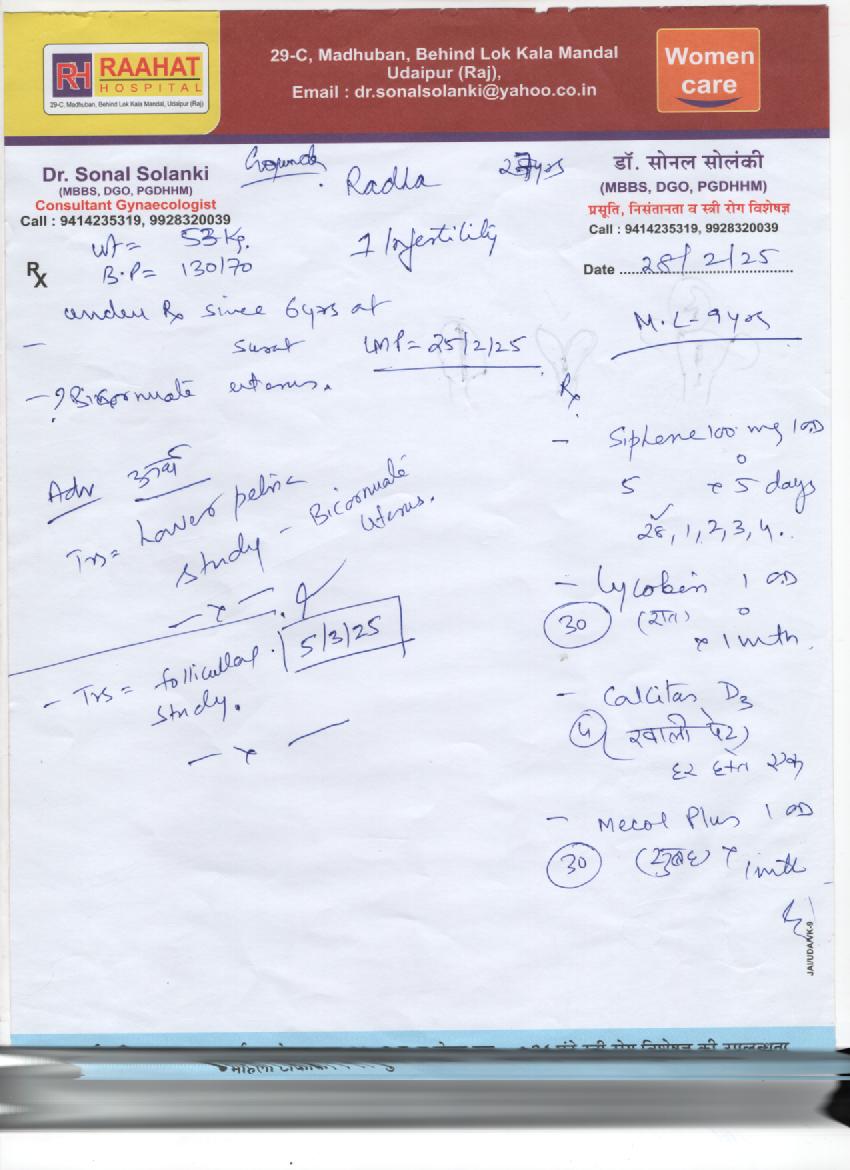 RH RAAHAT
HOSPITAL
29-C, Madhuban, Behind Lok Kala Mandal, Udaipur (Raj)
29-C, Madhuban, Behind Lok Kala Mandal
Udaipur (Raj),
Email : dr.sonalsolanki@yahoo.co.in
Women
care
Dr. Sonal Solanki
(MBBS, DGO, PGDHHM)
Consultant Gynaecologist
Call : 9414235319, 9928320039
Radha
डॉ. सोनल सोलंकी
(MBBS, DGO, PGDHHM)
प्रसूति, निसंतानता व स्त्री रोग विशेषज्ञ
Call : 9414235319, 9928320039
Date 28/2/25
Wt = 53 Kg.
B.P = 130/70
1 Infertility
Rx
under Rx since 6yrs at
Surat
LMP = 25/2/25
M.L - 9 yrs
- ? Bicornuate uterus.
Adv
Trs = Lower pelvic
study - Bicornuate
Uterus.
- x -
- Trs = follicular
study.
5/3/25
- x -
Rx
- Siphene 100 mg 1 OD
5 x 5 days
28, 1, 2, 3, 4.
- Lycokin 1 OD
30 (रात)
x 1 mth.
- Calcitas D3
4 खाली पेट
हर हफ्ते एक
- Mecol Plus 1 OD
30 (सुबह) x 1 mth
JAI/UDA/VK-9